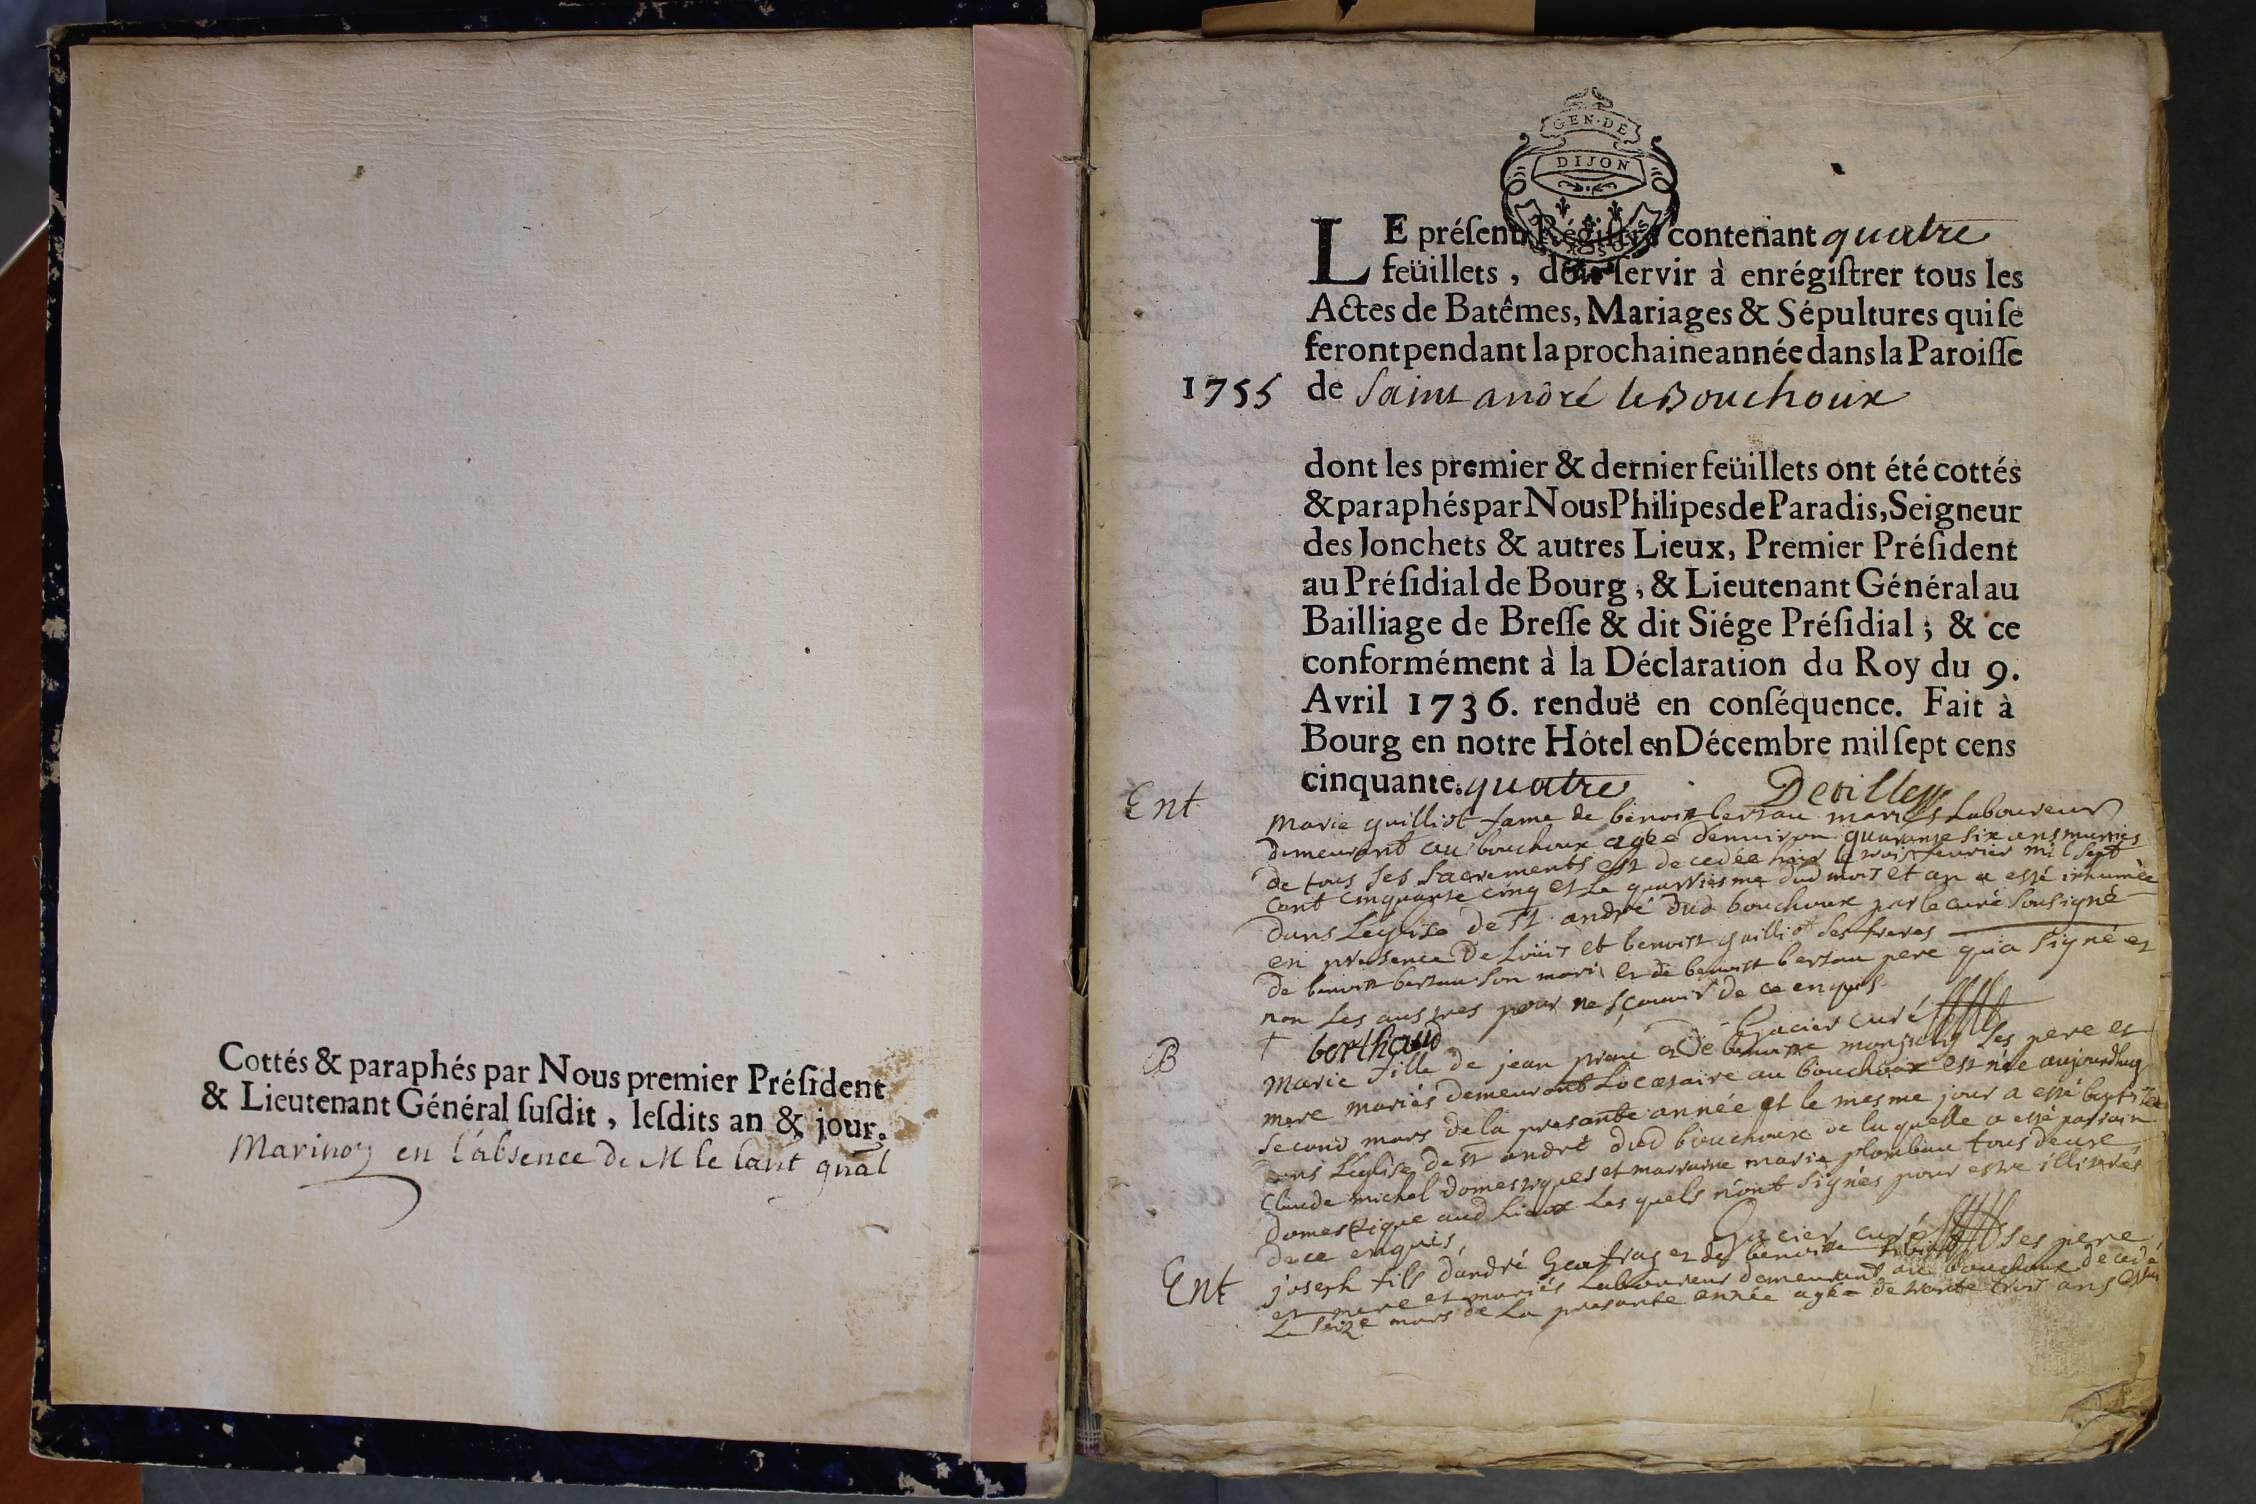 Cottés & paraphés par Nous premier Préſident
& Lieutenant Général ſuſdit, leſdits an & jour.
en l'absence de M le
GEN·DE
DIJON
LE préſent Régiſtre contenant quatre
feüillets, doit ſervir à enrégiſtrer tous les
Actes de Batêmes, Mariages & Sépultures qui ſe
feront pendant la prochaine année dans la Paroiſſe
1755 de Saint andré le Bouchoux
dont les premier & dernier feüillets ont été cottés
& paraphés par Nous Philipes de Paradis, Seigneur
des Jonchets & autres Lieux, Premier Préſident
au Préſidial de Bourg, & Lieutenant Général au
Bailliage de Breſſe & dit Siége Préſidial; & ce
conformément à la Déclaration du Roy du 9.
Avril 1736. renduë en conſéquence. Fait à
Bourg en notre Hôtel en Décembre mil ſept cens
cinquante. quatre
Ent
marie guilliot fame de benoist bertau mariés Laboureur
demeurant au bouchoux agée denuiron quarante six ans munies
de tous ses sacrements est decedée hier le trois feurier mil sept
cent cinquante cinq et le quatriesme dud mois et an a esté inhumée
dans Leglise de st andré dud bouchoux par le curé sousigné
en presence De Loüis et benoist guilliot ses freres
de benoist bertau son mari et de benoist bertau pere qui a signé et
non les austres pour ne sçauoir de ce enquis
† berthaud
Gacier curé
B
marie fille de jean et De benoiste ses pere et
mere mariés demeurant Locataire au bouchoux est née aujourdhuy
second mars de la presante année et le mesme jour a esté baptizée
dans Leglise de st andré dud bouchoux de la quelle a esté parrain
Claude michel domestique et marraine marie plombau tous deux
domestique aud lieux Les quels n'ont signés pour estre illitérés
de ce enquis
Gacier curé
Ent
joseph fils dandré et de benoiste ses pere
et mere et mariés Laboureur demeurant au bouchoux decedé
le seize mars de La presante année agée de trante trois ans